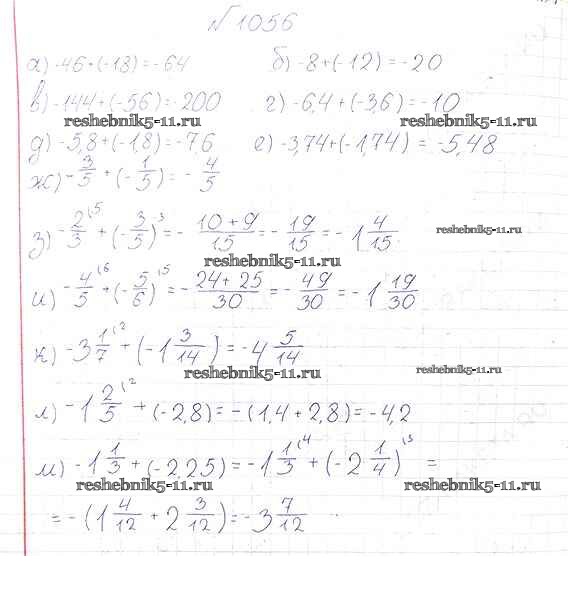 №1056
а) -46+(-18)=-64 б) -8+(-12)=-20
в) -144+(-56)=-200 г) -6,4+(-3,6)=-10
reshebnik5-11.ru reshebnik5-11.ru
д) -5,8+(-1,8)=-7,6 е) -3,74+(-1,74)=-5,48
ж) -3/5+(-1/5)=-4/5
з) -2/3(5+(-3/5)(3=-(10+9)/15=-19/15=-1 4/15
reshebnik5-11.ru
reshebnik5-11.ru
и) -4/5(6+(-5/6)(5=-(24+25)/30=-49/30=-1 19/30
к) -3 1/7(2+(-1 3/14)=-4 5/14
reshebnik5-11.ru
reshebnik5-11.ru
л) -1 2/5(2+(-2,8)=-(1,4+2,8)=-4,2
м) -1 1/3+(-2,25)=-1 1/3(4+(-2 1/4)(3=
reshebnik5-11.ru reshebnik5-11.ru
=-(1 4/12+2 3/12)=-3 7/12